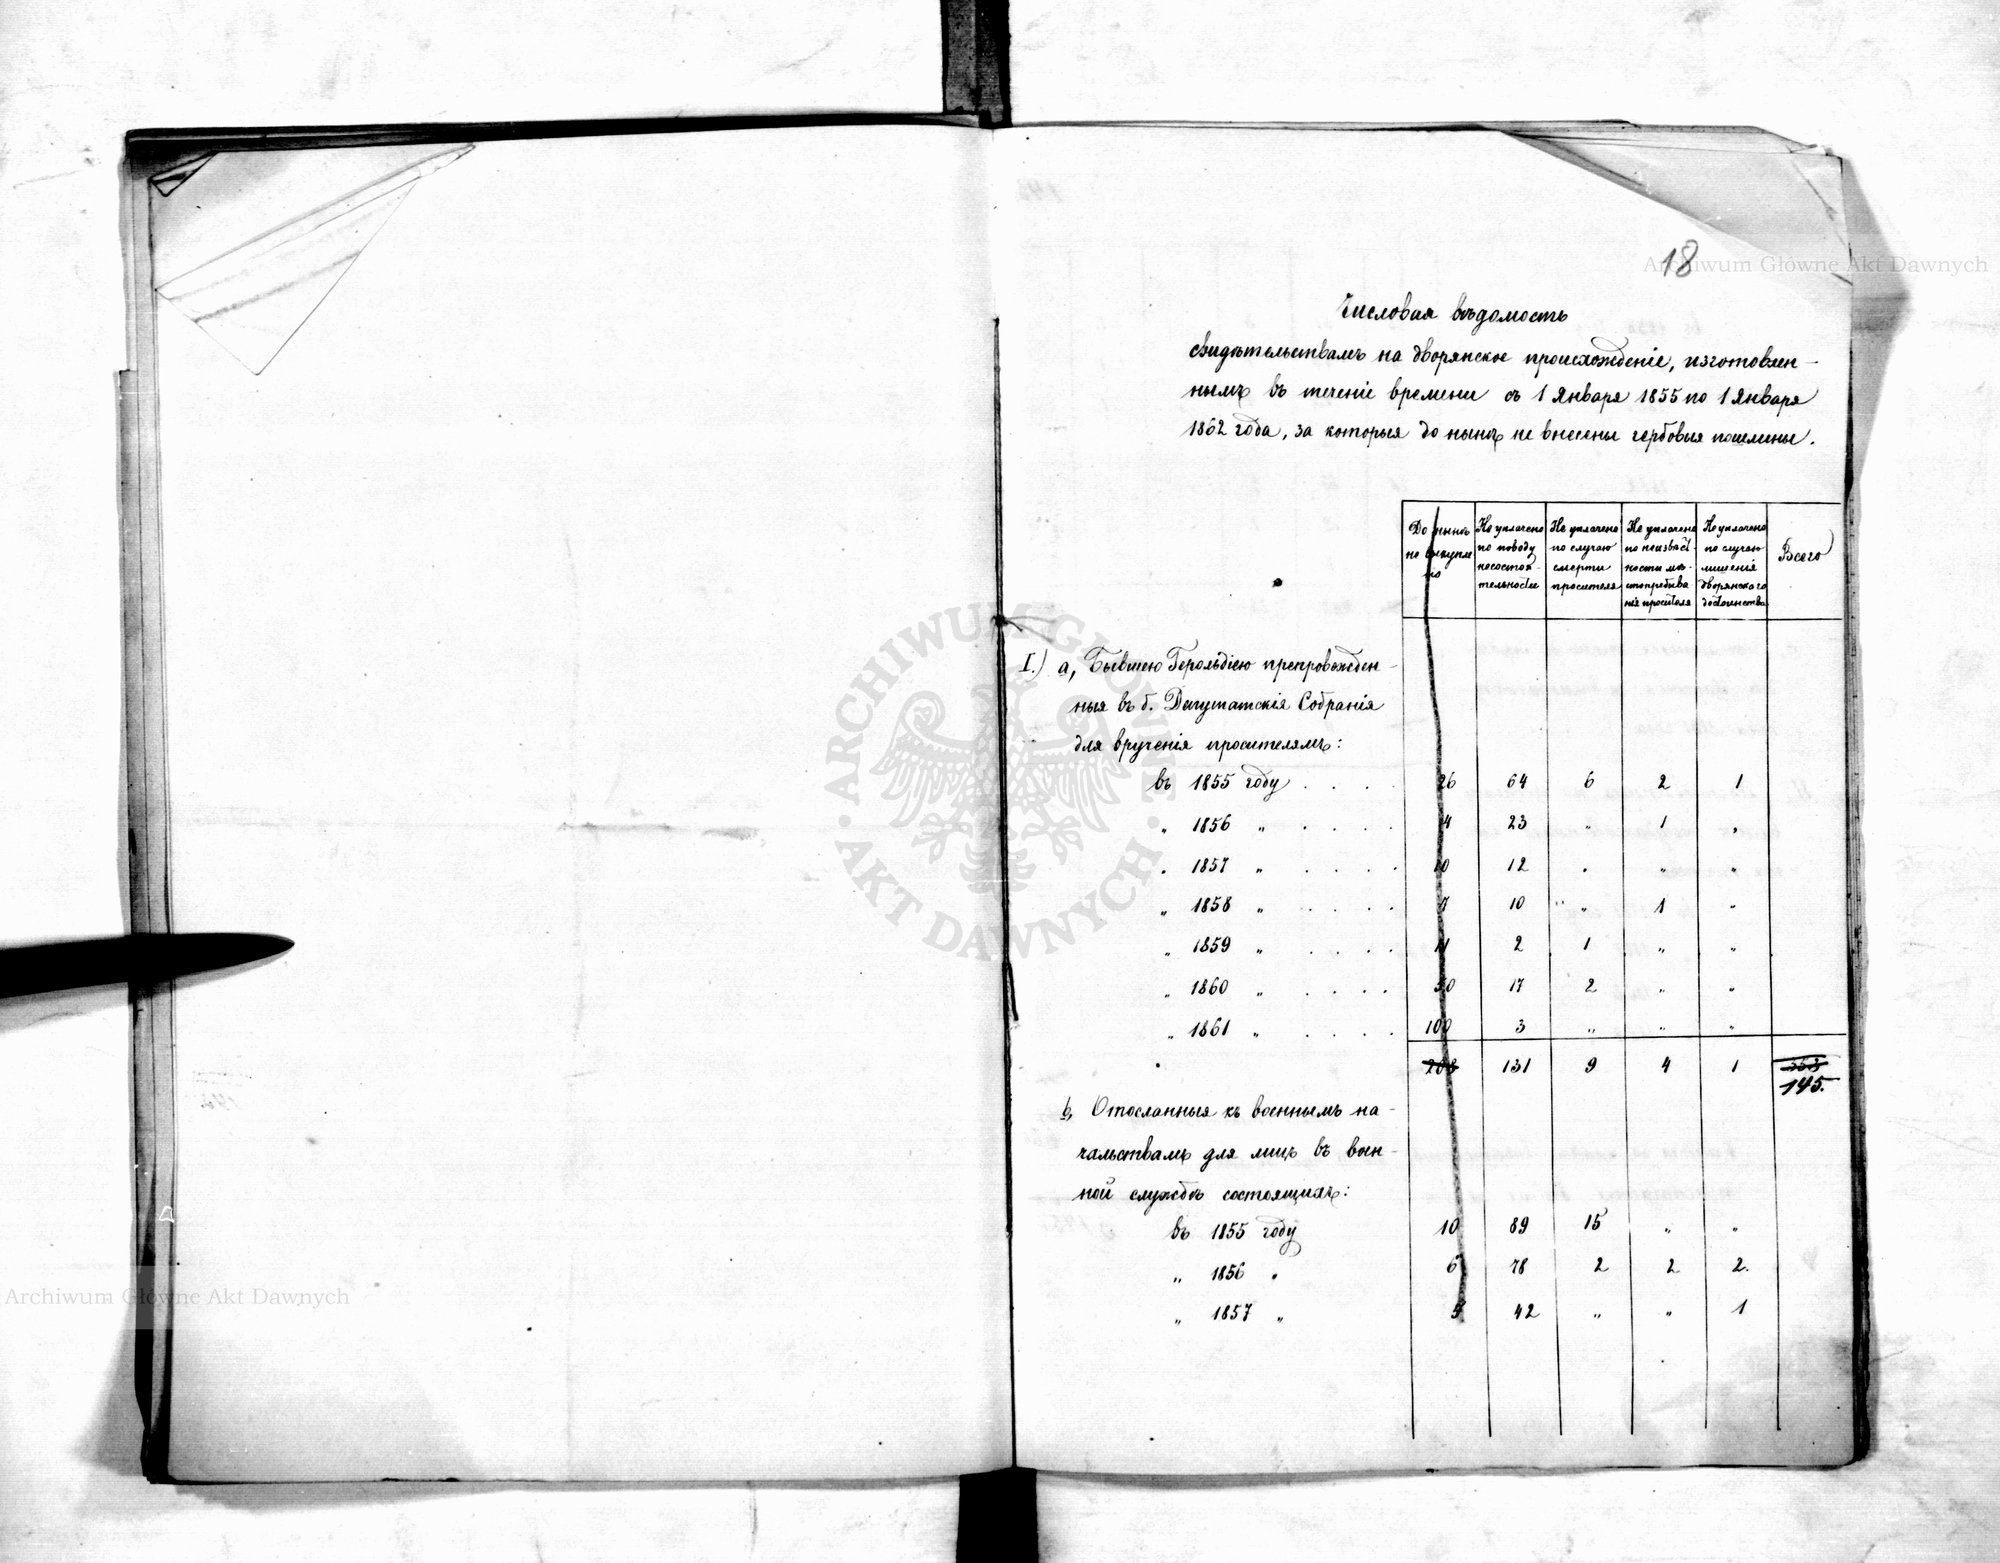 18
Archiwum Główne Akt Dawnych
Числовая вѣдомость
свидѣтельствамъ на дворянское происхожденіе, изготовлен-
нымъ въ теченіе времени съ 1 Января 1855 по 1 Января
1862 года, за которыя до нынѣ не внесены гербовыя пошлины.
До нынѣ не выкупле но
Не уплачено по поводу несостоя- тельности
Не уплачено по случаю смерти просителя
Не уплачено по неизвѣст- ности мѣ- стопребыва нія просителя
Не уплачено по случаю лишенія дворянского достоинства
Всего
I.) a, Бывшею Герольдіею препровожден-
ныя въ б. Депутатскія Собранія
для врученія просителямъ:
въ 1855 году . . . . 26 64 6 2 1
„ 1856 „ . . . . 4 23 „ 1 „
„ 1857 „ . . . . 10 12 „ „ „
„ 1858 „ . . . . 7 10 „ 1 „
„ 1859 „ . . . . 11 2 1 „ „
„ 1860 „ . . . . 50 17 2 „ „
„ 1861 „ . . . . 100 3 „ „ „
208 131 9 4 1 353
145.
b, Отосланныя къ военнымъ на-
чальствамъ для лицъ въ воен-
ной службѣ состоящихъ:
въ 1855 году 10 89 15 „ „
„ 1856 „ 6 78 2 2 2.
„ 1857 „ 5 42 „ „ 1
ARCHIWUM GŁÓWNE AKT DAWNYCH
Archiwum Główne Akt Dawnych